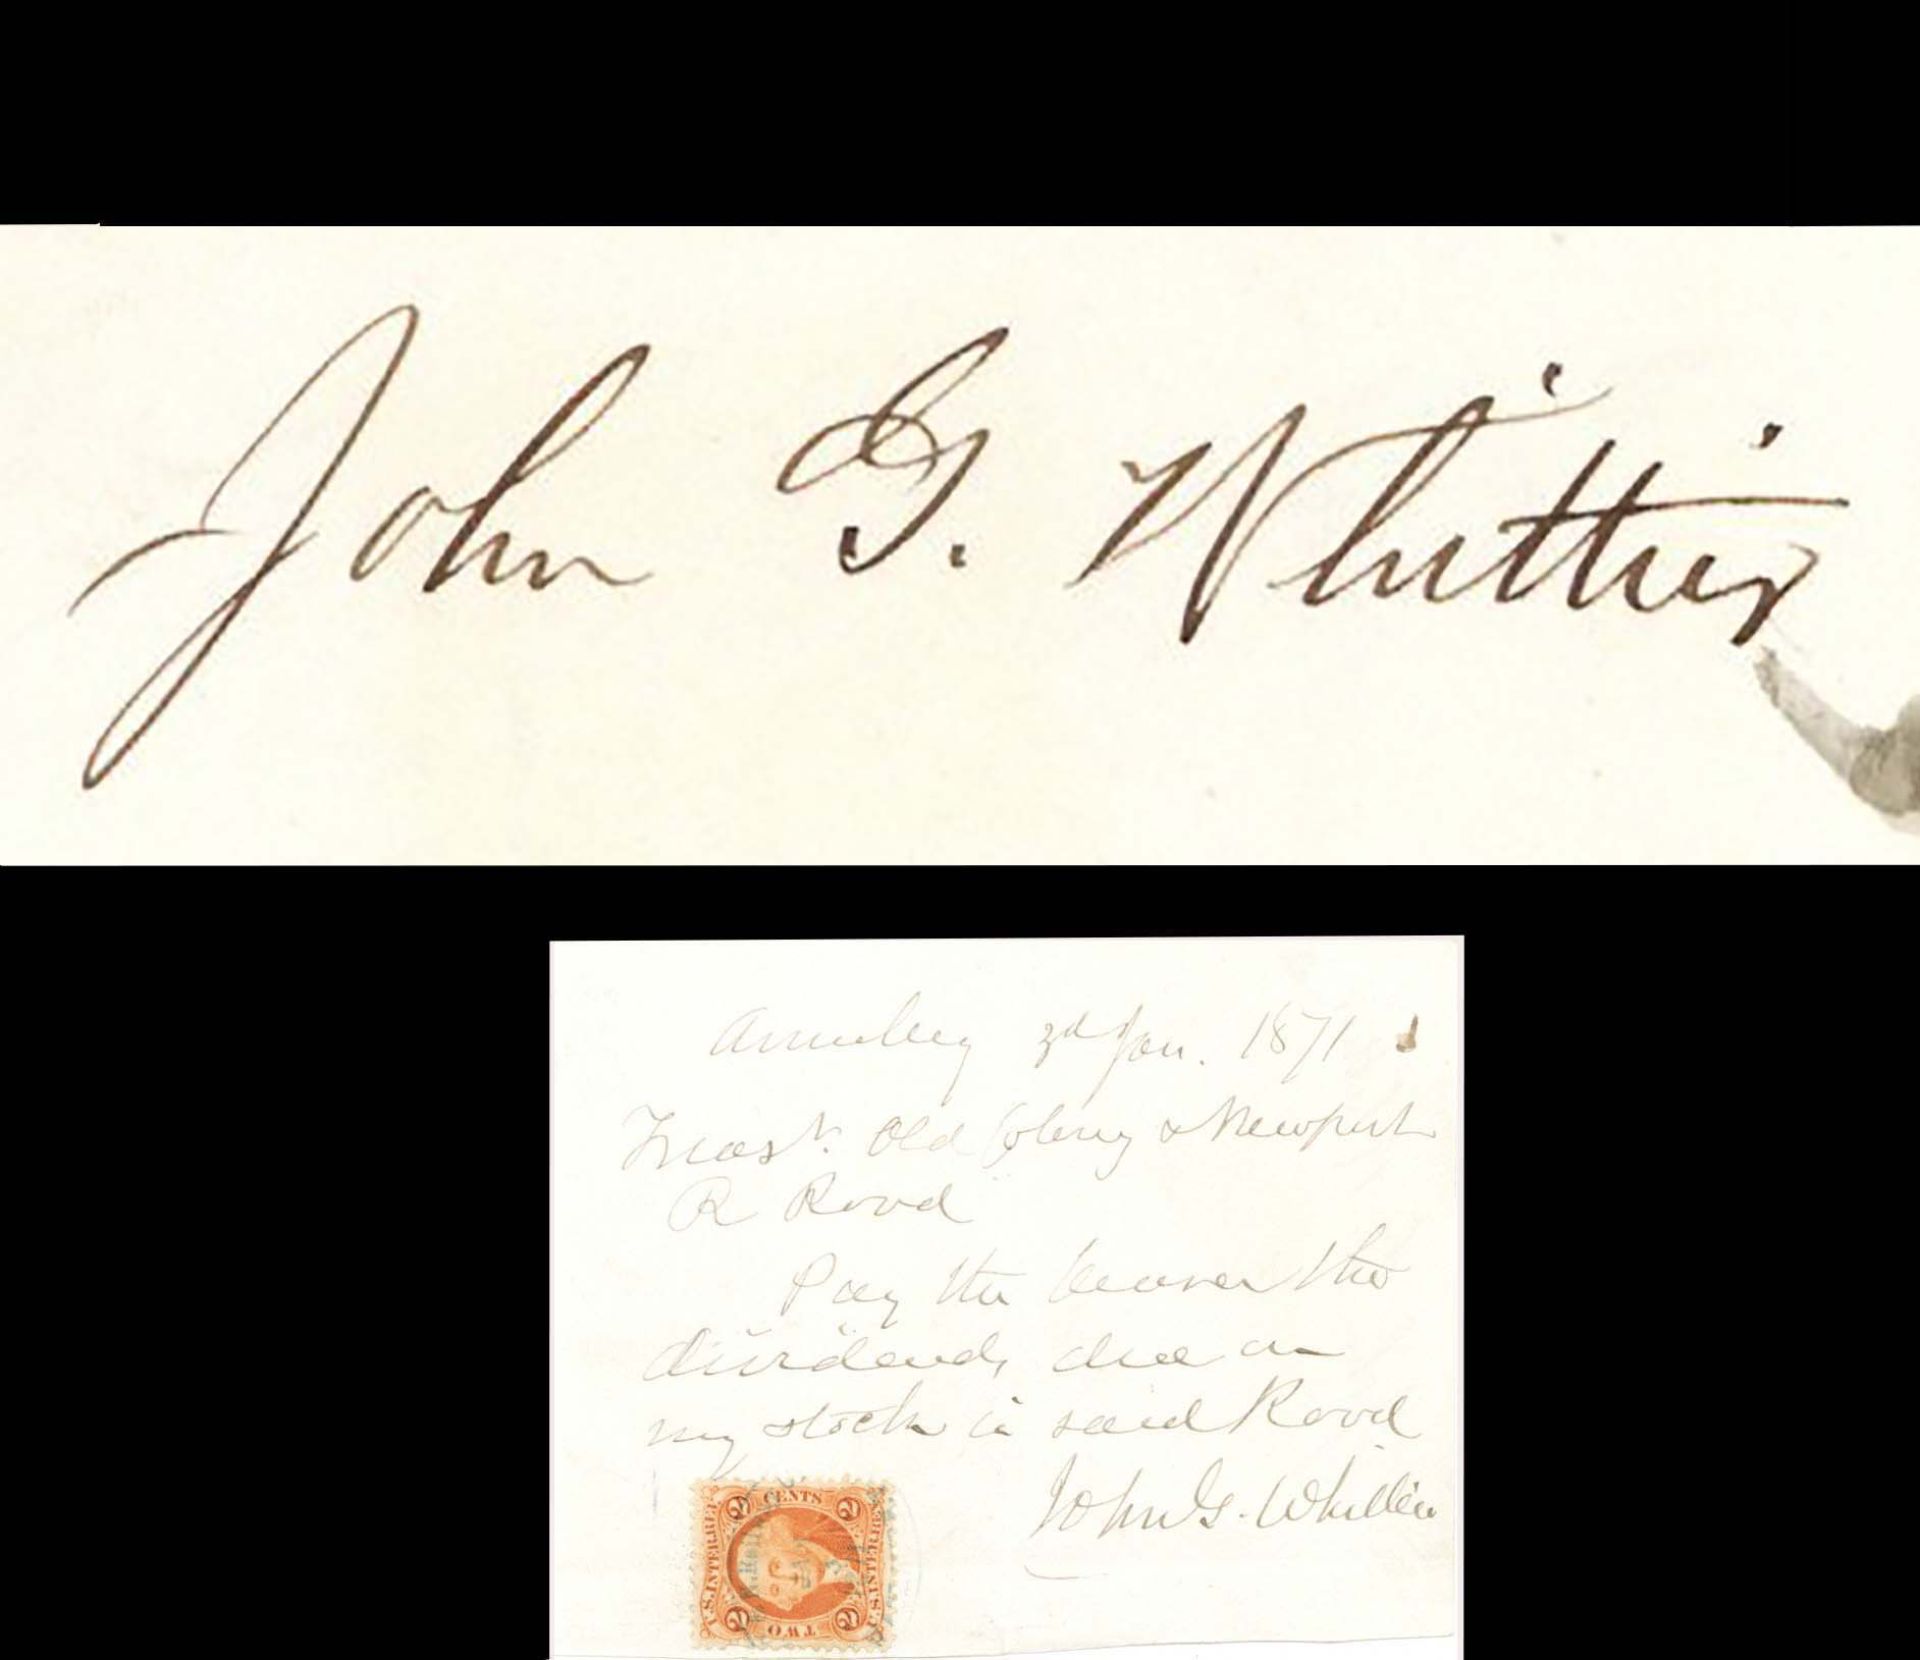 John G. Whittier
Amesbury 3d Jan. 1871
Treasr. Old Colony & Newport
R Road
Pay the bearer the
dividends due on
my stock in said Road
John G. Whittier
2 CENTS 2
U.S. INTER. REV.
U.S. INTER. REV.
2 TWO 2